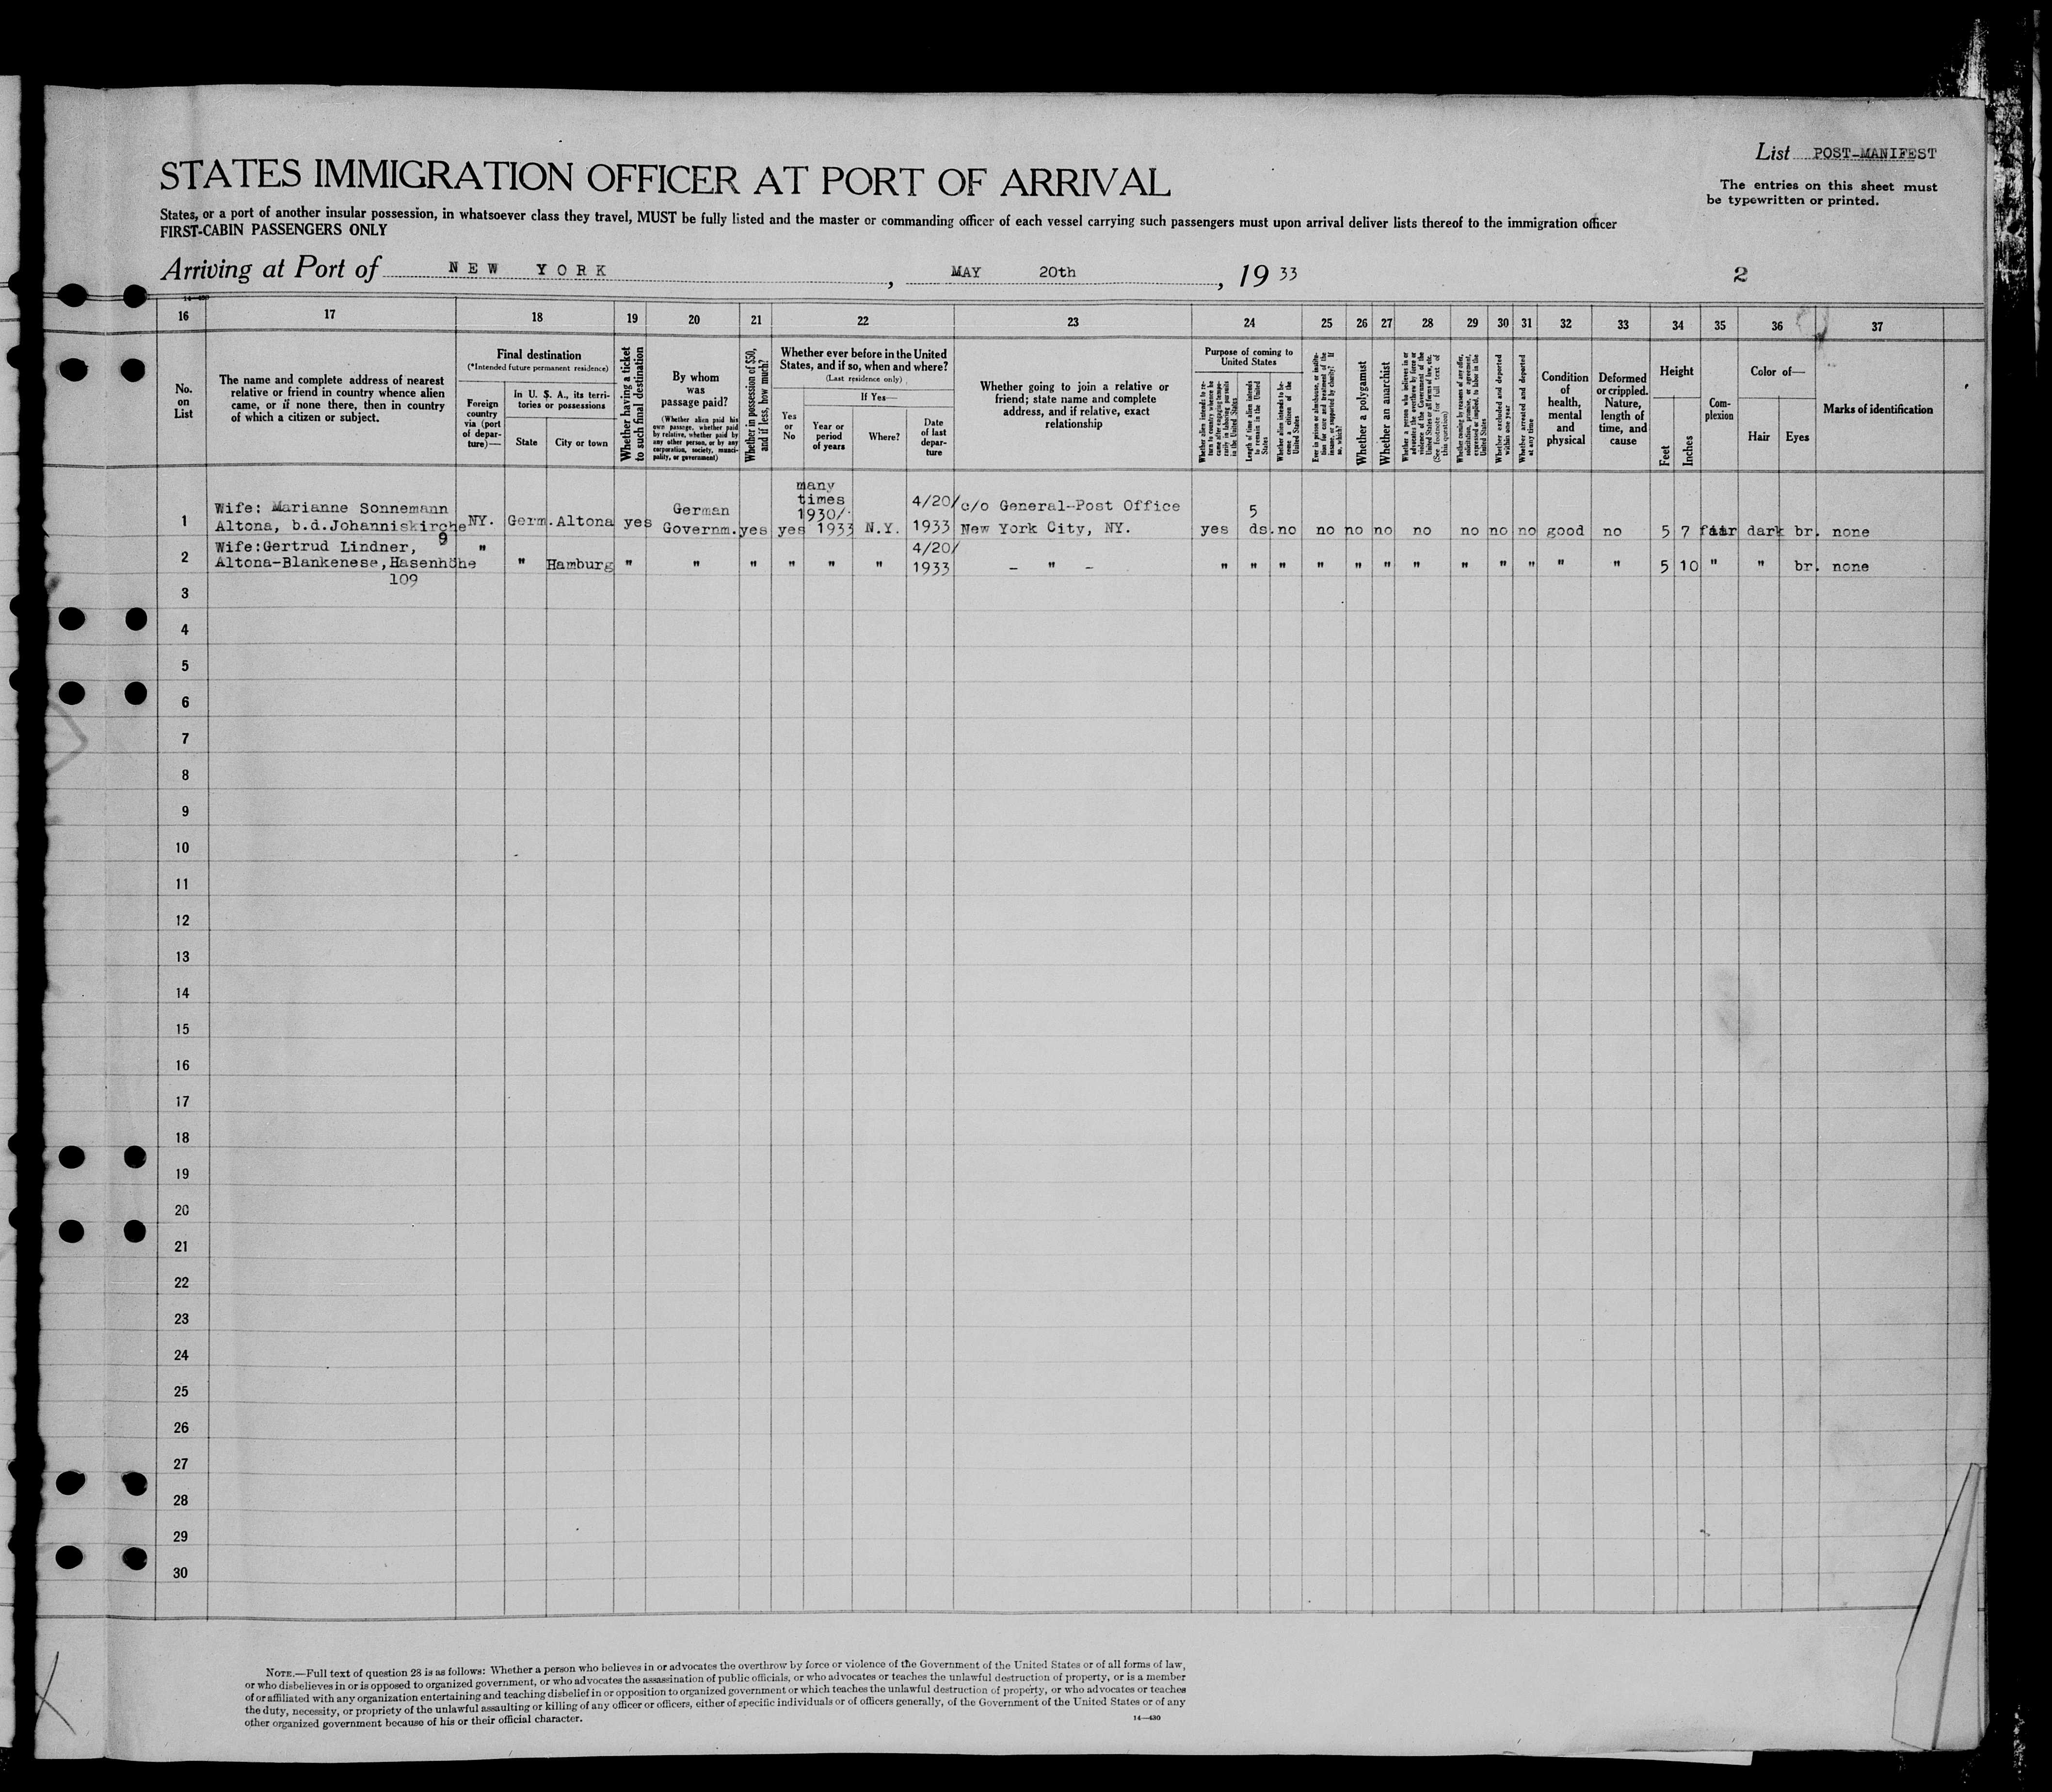 List POST-MANIFEST
STATES IMMIGRATION OFFICER AT PORT OF ARRIVAL
The entries on this sheet must
be typewritten or printed.
States, or a port of another insular possession, in whatsoever class they travel, MUST be fully listed and the master or commanding officer of each vessel carrying such passengers must upon arrival deliver lists thereof to the immigration officer
FIRST-CABIN PASSENGERS ONLY
Arriving at Port of NEW YORK, MAY 20th, 1933
2
16 17 18 19 20 21 22 23 24 25 26 27 28 29 30 31 32 33 34 35 36 37
No.
on
List
The name and complete address of nearest
relative or friend in country whence alien
came, or if none there, then in country
of which a citizen or subject.
Final destination
(*Intended future permanent residence)
Foreign
country
via (port
of depar-
ture)—
In U. S. A., its terri-
tories or possessions
State
City or town
Whether having a ticket
to such final destination
By whom
was
passage paid?
(Whether alien paid his
own passage, whether paid
by relative, whether paid by
any other person, or by any
corporation, society, munici-
pality, or government)
Whether in possession of $50,
and if less, how much?
Whether ever before in the United
States, and if so, when and where?
(Last residence only)
If Yes—
Yes
or
No
Year or
period
of years
Where?
Date
of last
depar-
ture
Whether going to join a relative or
friend; state name and complete
address, and if relative, exact
relationship
Purpose of coming to
United States
Whether alien intends to re-
turn to country whence he
came after engaging tempo-
rarily in laboring pursuits
in the United States
Length of time alien intends
to remain in the United
States
Whether alien intends to be-
come a citizen of the
United States
Ever in prison or almshouse, or institu-
tion for care and treatment of the
insane, or supported by charity? If
so, which?
Whether a polygamist
Whether an anarchist
Whether a person who believes in or
advocates the overthrow by force or
violence of the Government of the
United States or all forms of law, etc.
(See footnote for full text of
this question)
Whether coming by reason of any offer,
solicitation, promise, or agreement,
expressed or implied, to labor in the
United States
Whether excluded and deported
within one year
Whether arrested and deported
at any time
Condition
of
health,
mental
and
physical
Deformed
or crippled.
Nature,
length of
time, and
cause
Height
Feet
Inches
Com-
plexion
Color of—
Hair
Eyes
Marks of identification
1 Wife: Marianne Sonnemann
Altona, b.d.Johanniskirche 9
NY. Germ. Altona yes German
Governm. yes yes many
times
1930/
1933 N.Y. 4/20/
1933 c/o General-Post Office
New York City, NY. yes 5
ds. no no no no no no no no good no 5 7 fair dark br. none
2 Wife:Gertrud Lindner,
Altona-Blankenese, Hasenhöhe
109
" " Hamburg " " " " " " 4/20/
1933 - " - " " " " " " " " " " " " 5 10 " " br. none
3
4
5
6
7
8
9
10
11
12
13
14
15
16
17
18
19
20
21
22
23
24
25
26
27
28
29
30
NOTE.—Full text of question 28 is as follows: Whether a person who believes in or advocates the overthrow by force or violence of the Government of the United States or of all forms of law,
or who disbelieves in or is opposed to organized government, or who advocates the assassination of public officials, or who advocates or teaches the unlawful destruction of property, or is a member
of or affiliated with any organization entertaining and teaching disbelief in or opposition to organized government or which teaches the unlawful destruction of property, or who advocates or teaches
the duty, necessity, or propriety of the unlawful assaulting or killing of any officer or officers, either of specific individuals or of officers generally, of the Government of the United States or of any
other organized government because of his or their official character.
14—430